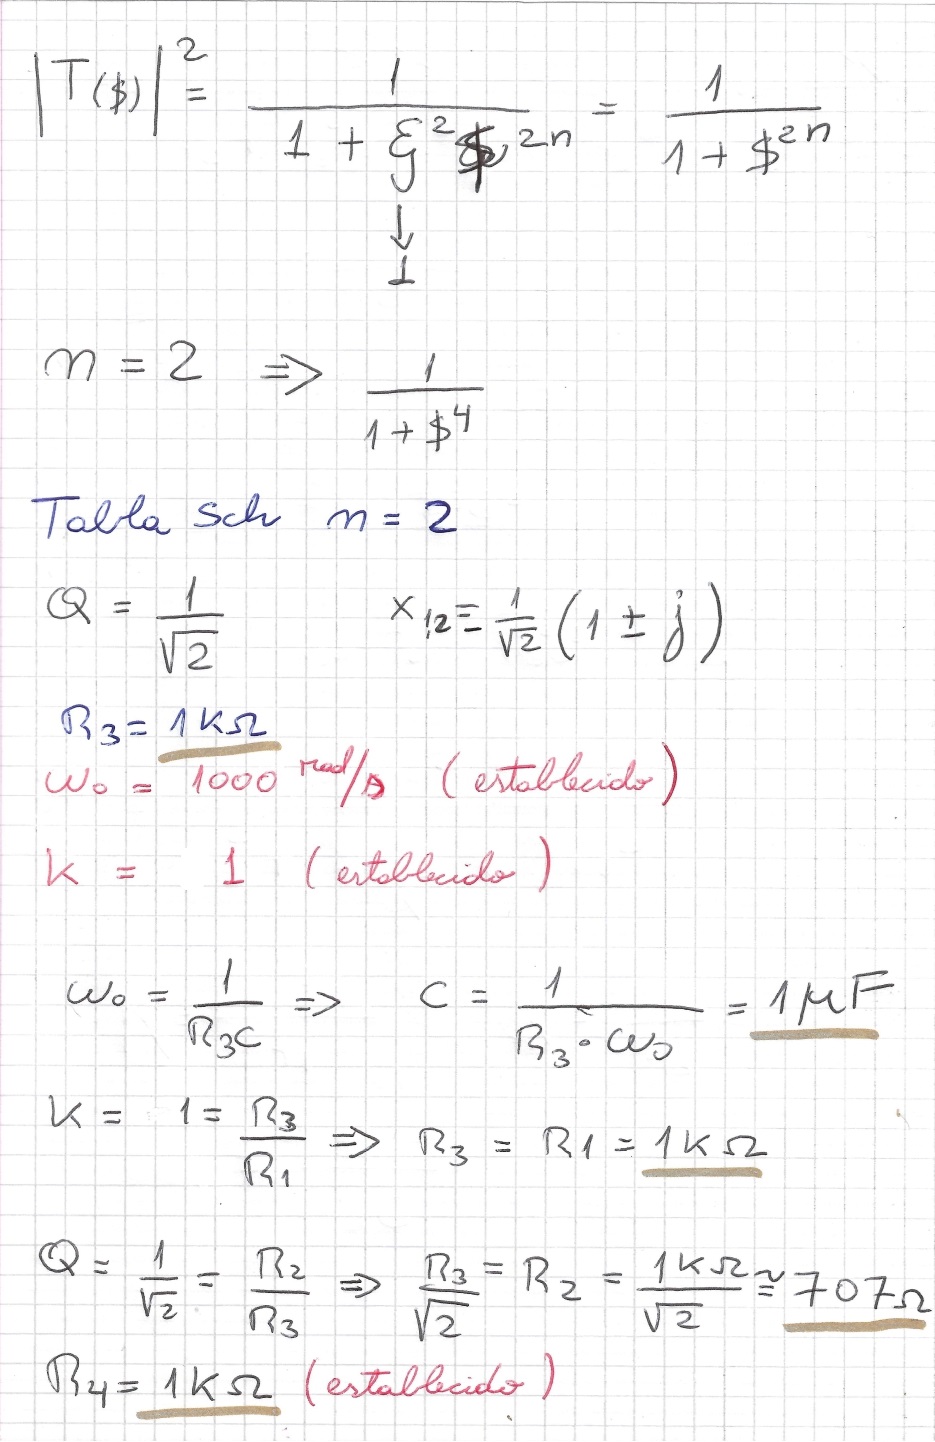 |T($)|² = 1 / (1 + ξ² $²ⁿ) = 1 / (1 + $²ⁿ)
↓
1
n = 2 ⇒ 1 / (1 + $⁴)
Tabla Sch n = 2
Q = 1/√2 x₁,₂ = 1/√2 (1 ± j)
R3 = 1KΩ
ω₀ = 1000 rad/s (establecido)
K = 1 (establecido)
ω₀ = 1/(R3C) ⇒ C = 1/(R3·ω₀) = 1μF
K = 1 = R3/R1 ⇒ R3 = R1 = 1KΩ
Q = 1/√2 = R2/R3 ⇒ R3/√2 = R2 = 1KΩ/√2 ≅ 707Ω
R4 = 1KΩ (establecido)